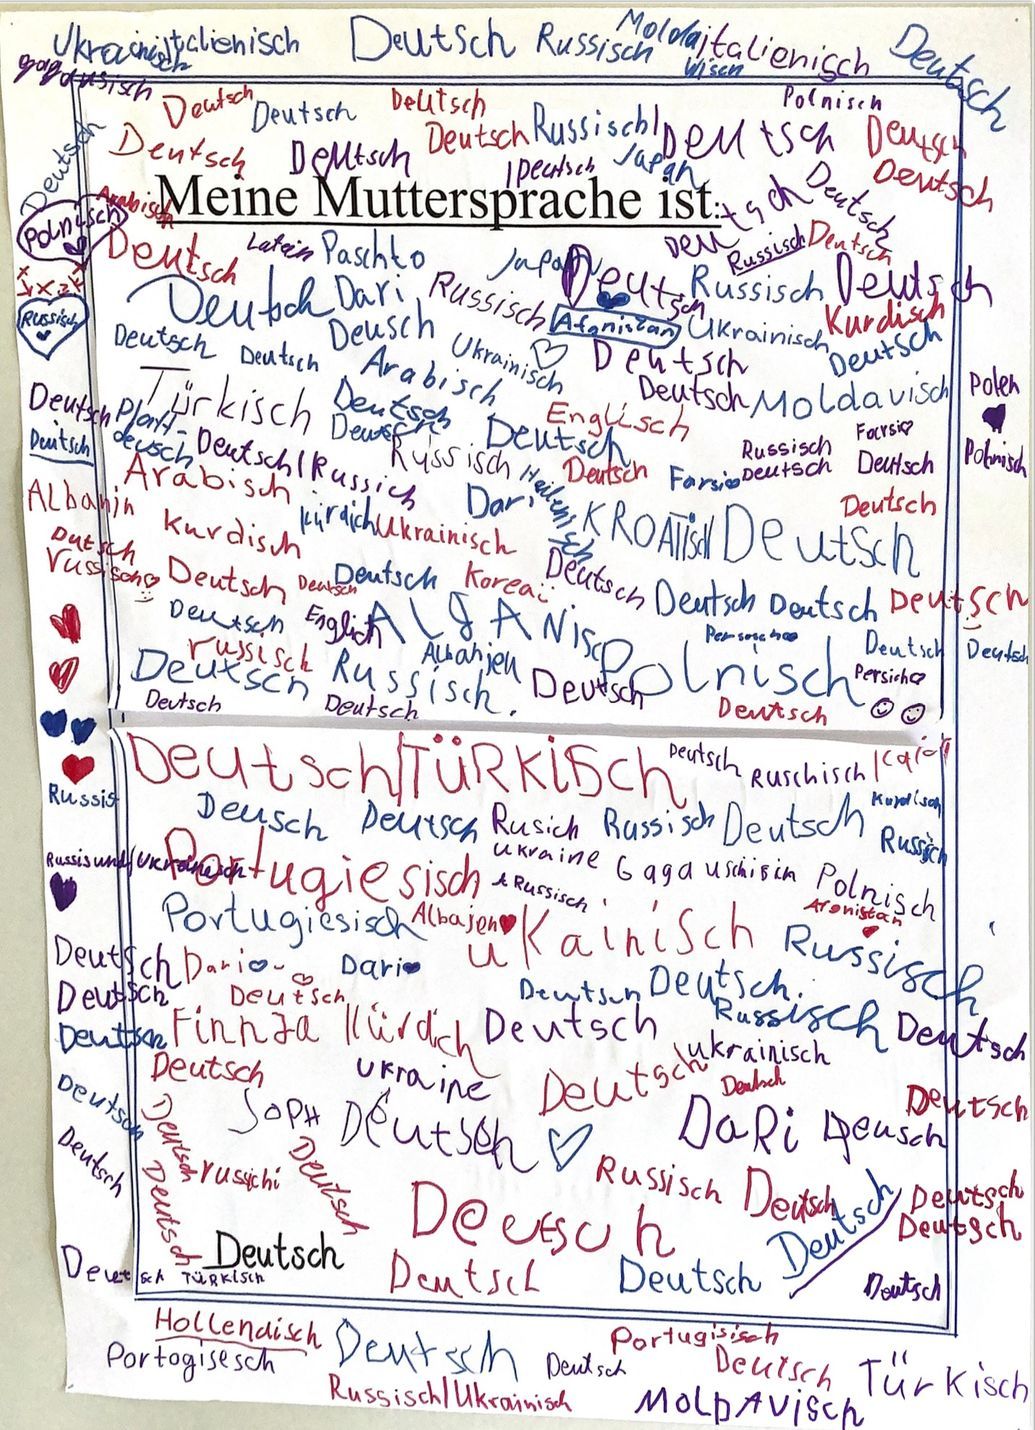 Ukrainisch italienisch Deutsch Russisch Moldawisch italienisch Deutsch
gagausisch Deutsch Deutsch Deutsch Polnisch
Deutsch Deutsch Deutsch Deutsch Russisch Deutsch Deutsch
Deutsch Japan Deutsch Deutsch
Polnisch Arabisch Meine Muttersprache ist: Deutsch
Deutsch Latein Paschto Japan Russisch Deutsch
Russisch Deutsch Dari Russisch Deutsch Russisch Deutsch
Deusch Afganistan Ukrainisch Kurdisch
Deutsch Deutsch Ukrainisch Deutsch Deutsch
Arabisch Deutsch Moldavisch Polen
Deutsch Türkisch Deutsch Englisch
Deutsch Plattdeutsch Deutsch Deutsch Russisch Farsi
Deutsch/Russich Russisch Deutsch Deutsch Deutsch Polnisch
Arabisch Farsi
Dari Deutsch
Kurdisch Kürdich Ukrainisch KROATiScH Deutsch
Deutsch
russisch Deutsch Deutsch Deutsch Koreai Deutsch Deutsch Deutsch Deutsch
Deutsch Englich Persisch Deutsch Deutsch
russisch Albanjen Polnisch Persich
Deutsch Russisch. Deutsch
Deutsch Deutsch Deutsch
Deutsch/TÜRKiSch Deutsch Ruschisch
Russis Kurdisch
Deusch Deutsch Rusich Russisch Deutsch Russisch
Russis und/Ukrainisch Portugiesisch Ukraine Gagauschisin Polnisch
& Russisch Afonistan
Portugiesisch Albajen uKainisch Russisch
Deutsch Dari Dari
Deutsch Deutsch Deutsch Deutsch.
Russisch
Deutsch Finnja Kürdich Deutsch Deutsch
Deutsch Ukraine Deutsch ukrainisch
Deutsch Deutsch Deutsch
Deutsch SOPH Deutsch DaRi Deusch
Deutsch russichi Deutsch Russisch Deutsch Deutsch
Deutsch Deutsch Deutsch Deutsch
Deutsch
Deutsch TÜRKisch Deutsch Deutsch Deutsch
Hollendisch Portugisisch
Portogisesch Deutsch Deutsch Deutsch Türkisch
Russisch/Ukrainisch MOLDAVisch